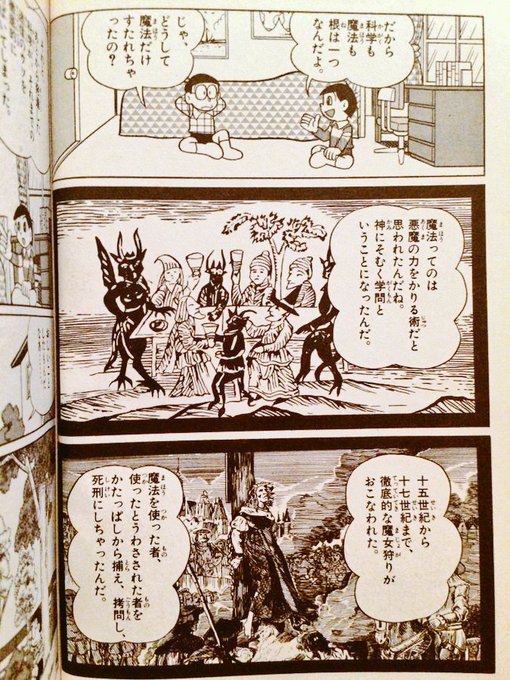 だから
科学も
魔法も
根は一つ
なんだよ。
じゃ、
どうして
魔法だけ
すたれちゃ
ったの？
魔法ってのは
悪魔の力をかりる術だと
思われたんだね。
神にそむく学問と
いうことになったんだ。
十五世紀から
十七世紀まで、
徹底的な魔女狩りが
おこなわれた。
魔法を使った者、
使ったとうわさされた者を
かたっぱしから捕え、拷問し、
死刑にしちゃったんだ。